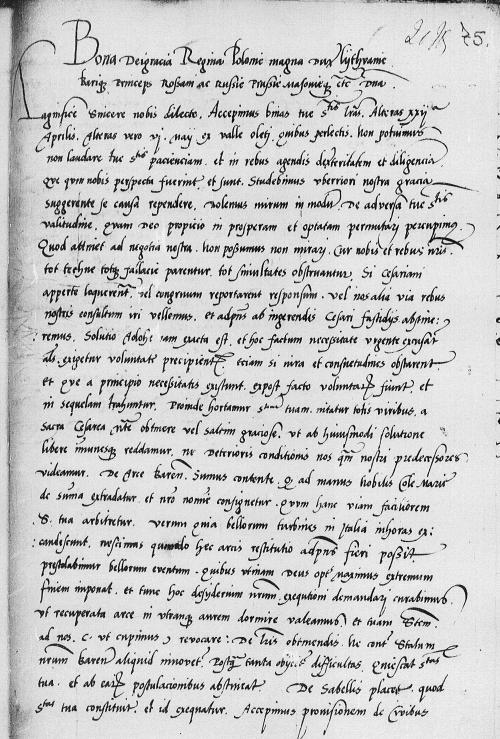 75.
Bona Dei gracia Regina Polonie magna Dux Lythvanie
Barique Princeps Rossani ac Russie Prussie Masovieque etc Dna
Magnifice Sincere nobis dilecte. Accepimus binas tue Stis lras. Alteras xxij
Aprilis. Alteras vero vj. Maij ex valle oletj. Quibus perlectis. Non potuimus
non laudare tue Stis pacienciam. et in rebus agendis dexteritatem et diligencia
Que quin nobis perspecta fuerint et sunt. Studebimus uberiori nostra gracia
suggerente se causa rependere. Volentes mirum in modu. De adversa tue Stis
valitudine. quam Deo propicio in prosperam et optatam permutarj percupimus
Quod attinet ad negotia nostra. Non possumus non mirarj. Cur nobis et rebus nris.
tot techne totque fallacie parentur. tot simultates obstruantur. Si Cesariani
apperte loquerent. vel congruum reportarent responsum. vel nos alia via rebus
nostris consultum iri vellemus. et adpns ab ingerendis Cesari fastidijs abstine:
:remus. Solutio Adohe iam exacta est. et hoc factum necessitate urgente excusat
als. exigetur voluntate precipient eciam si iura et consuetudines obstarent
et que a principio necessitatis existunt. expost facto voluntar fiunt. et
in sequelam trahuntur. Proinde hortamur Stem tuam. nitatur totis viribus. a
sacra Cesarea Mte obtinere vel saltim graciose. ut ab huiusmodi solutione
libere immunesque reddamur. ne Deterioris conditionis nos qm nostri predecessores
videamur. De Arce Baren. Sumus contente. q ad manus Nobilis Cole Marie
de suma extradatur. et nro nomine consignetur. Quum hanc viam faciliorem
S. tua arbitretur. verum quia bellorum turbines in Italia in horas ex:
:candescunt. nescimus quando hec arcis restitutio adpns fieri possit
prestolabimur bellorum eventum. Quibus utinam Deus opt. Maximus extremum
finem imponat. et tunc hoc desyderium nrum. exequtioni demandarj curabimus.
ut recuperata arce in utranque aurem dormire valeamus. et tuam Stem.
ad nos. ut cupimus revocare: De lris obtinendis. Ne cont Statum
nrum Baren aliquid innovet. Postque tanta obijcit difficultas. Quiescat Stas
tua. et ab ear postulacionibus abstineat. De Sabellis placet. quod
Stas tua constituit. et id exequatur. Accepimus provisionem de Civibus